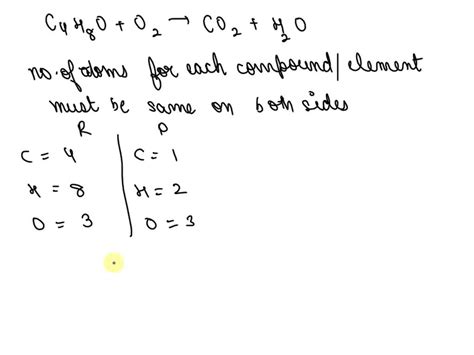 C₄H₈O + O₂ → CO₂ + H₂O
no. of atoms for each compound/element
must be same on both sides
R P
C = 4 C = 1
H = 8 H = 2
O = 3 O = 3